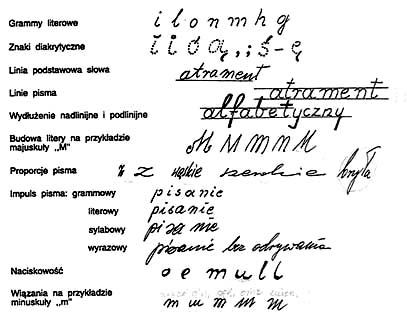 Grammy literowe i l o n m h g
Znaki diakrytyczne i i ó ą , ; ś - ę
Linia podstawowa słowa atrament
Linie pisma atrament
Wydłużenie nadlinijne i podlinijne alfabetyczny
Budowa litery na przykładzie
majuskuły „M" M M M M M
Proporcje pisma z wąskie szerokie bryła
Impuls pisma: grammowy pisanie
literowy pisanie
sylabowy pisanie
wyrazowy pisanie bez odrywania
Naciskowość o e m u l l
Wiązania na przykładzie
minuskuły „m" m m m m m